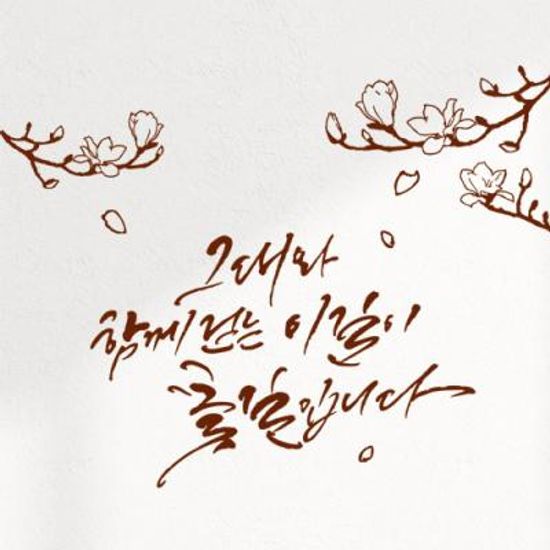 그대와
함께 걷는 이 길이
꽃길입니다